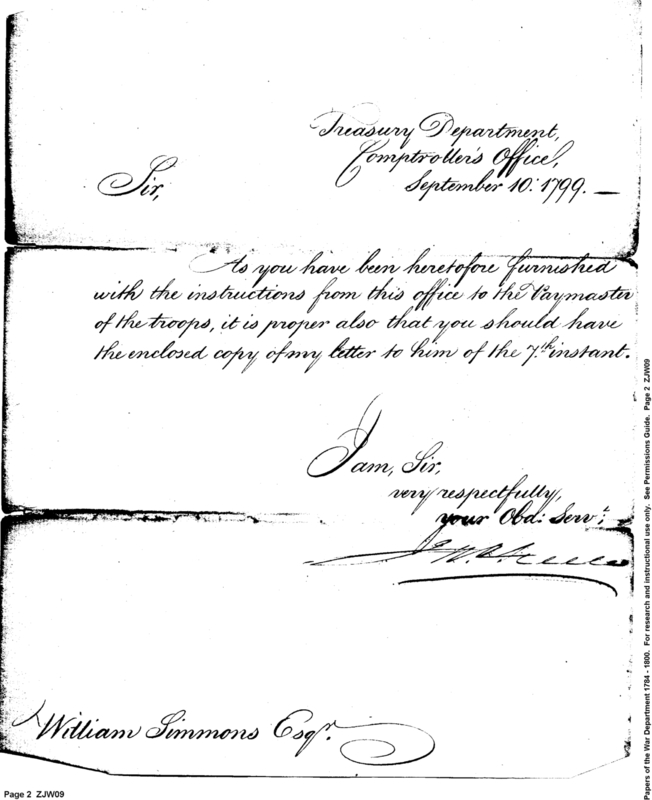 Treasury Department,
Comptroller's Office,
September 10: 1799.—
Sir,
As you have been heretofore furnished
with the instructions from this office to the Paymaster
of the troops, it is proper also that you should have
the enclosed copy of my letter to him of the 7.th instant.
I am, Sir,
very respectfully,
your Obd: Serv.t;
William Simmons Esqr.
Page 2 ZJW09
Papers of the War Department 1784 - 1800. For research and instructional use only. See Permissions Guide. Page 2 ZJW09